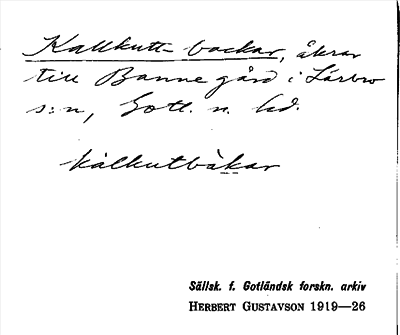 Kallkutt-backar, åkrar
till Banne gård i Lärbro
s:n, Gotl. n. hd.
kálkutbàkar
Sällsk. f. Gotländsk forskn. arkiv
HERBERT GUSTAVSON 1919—26